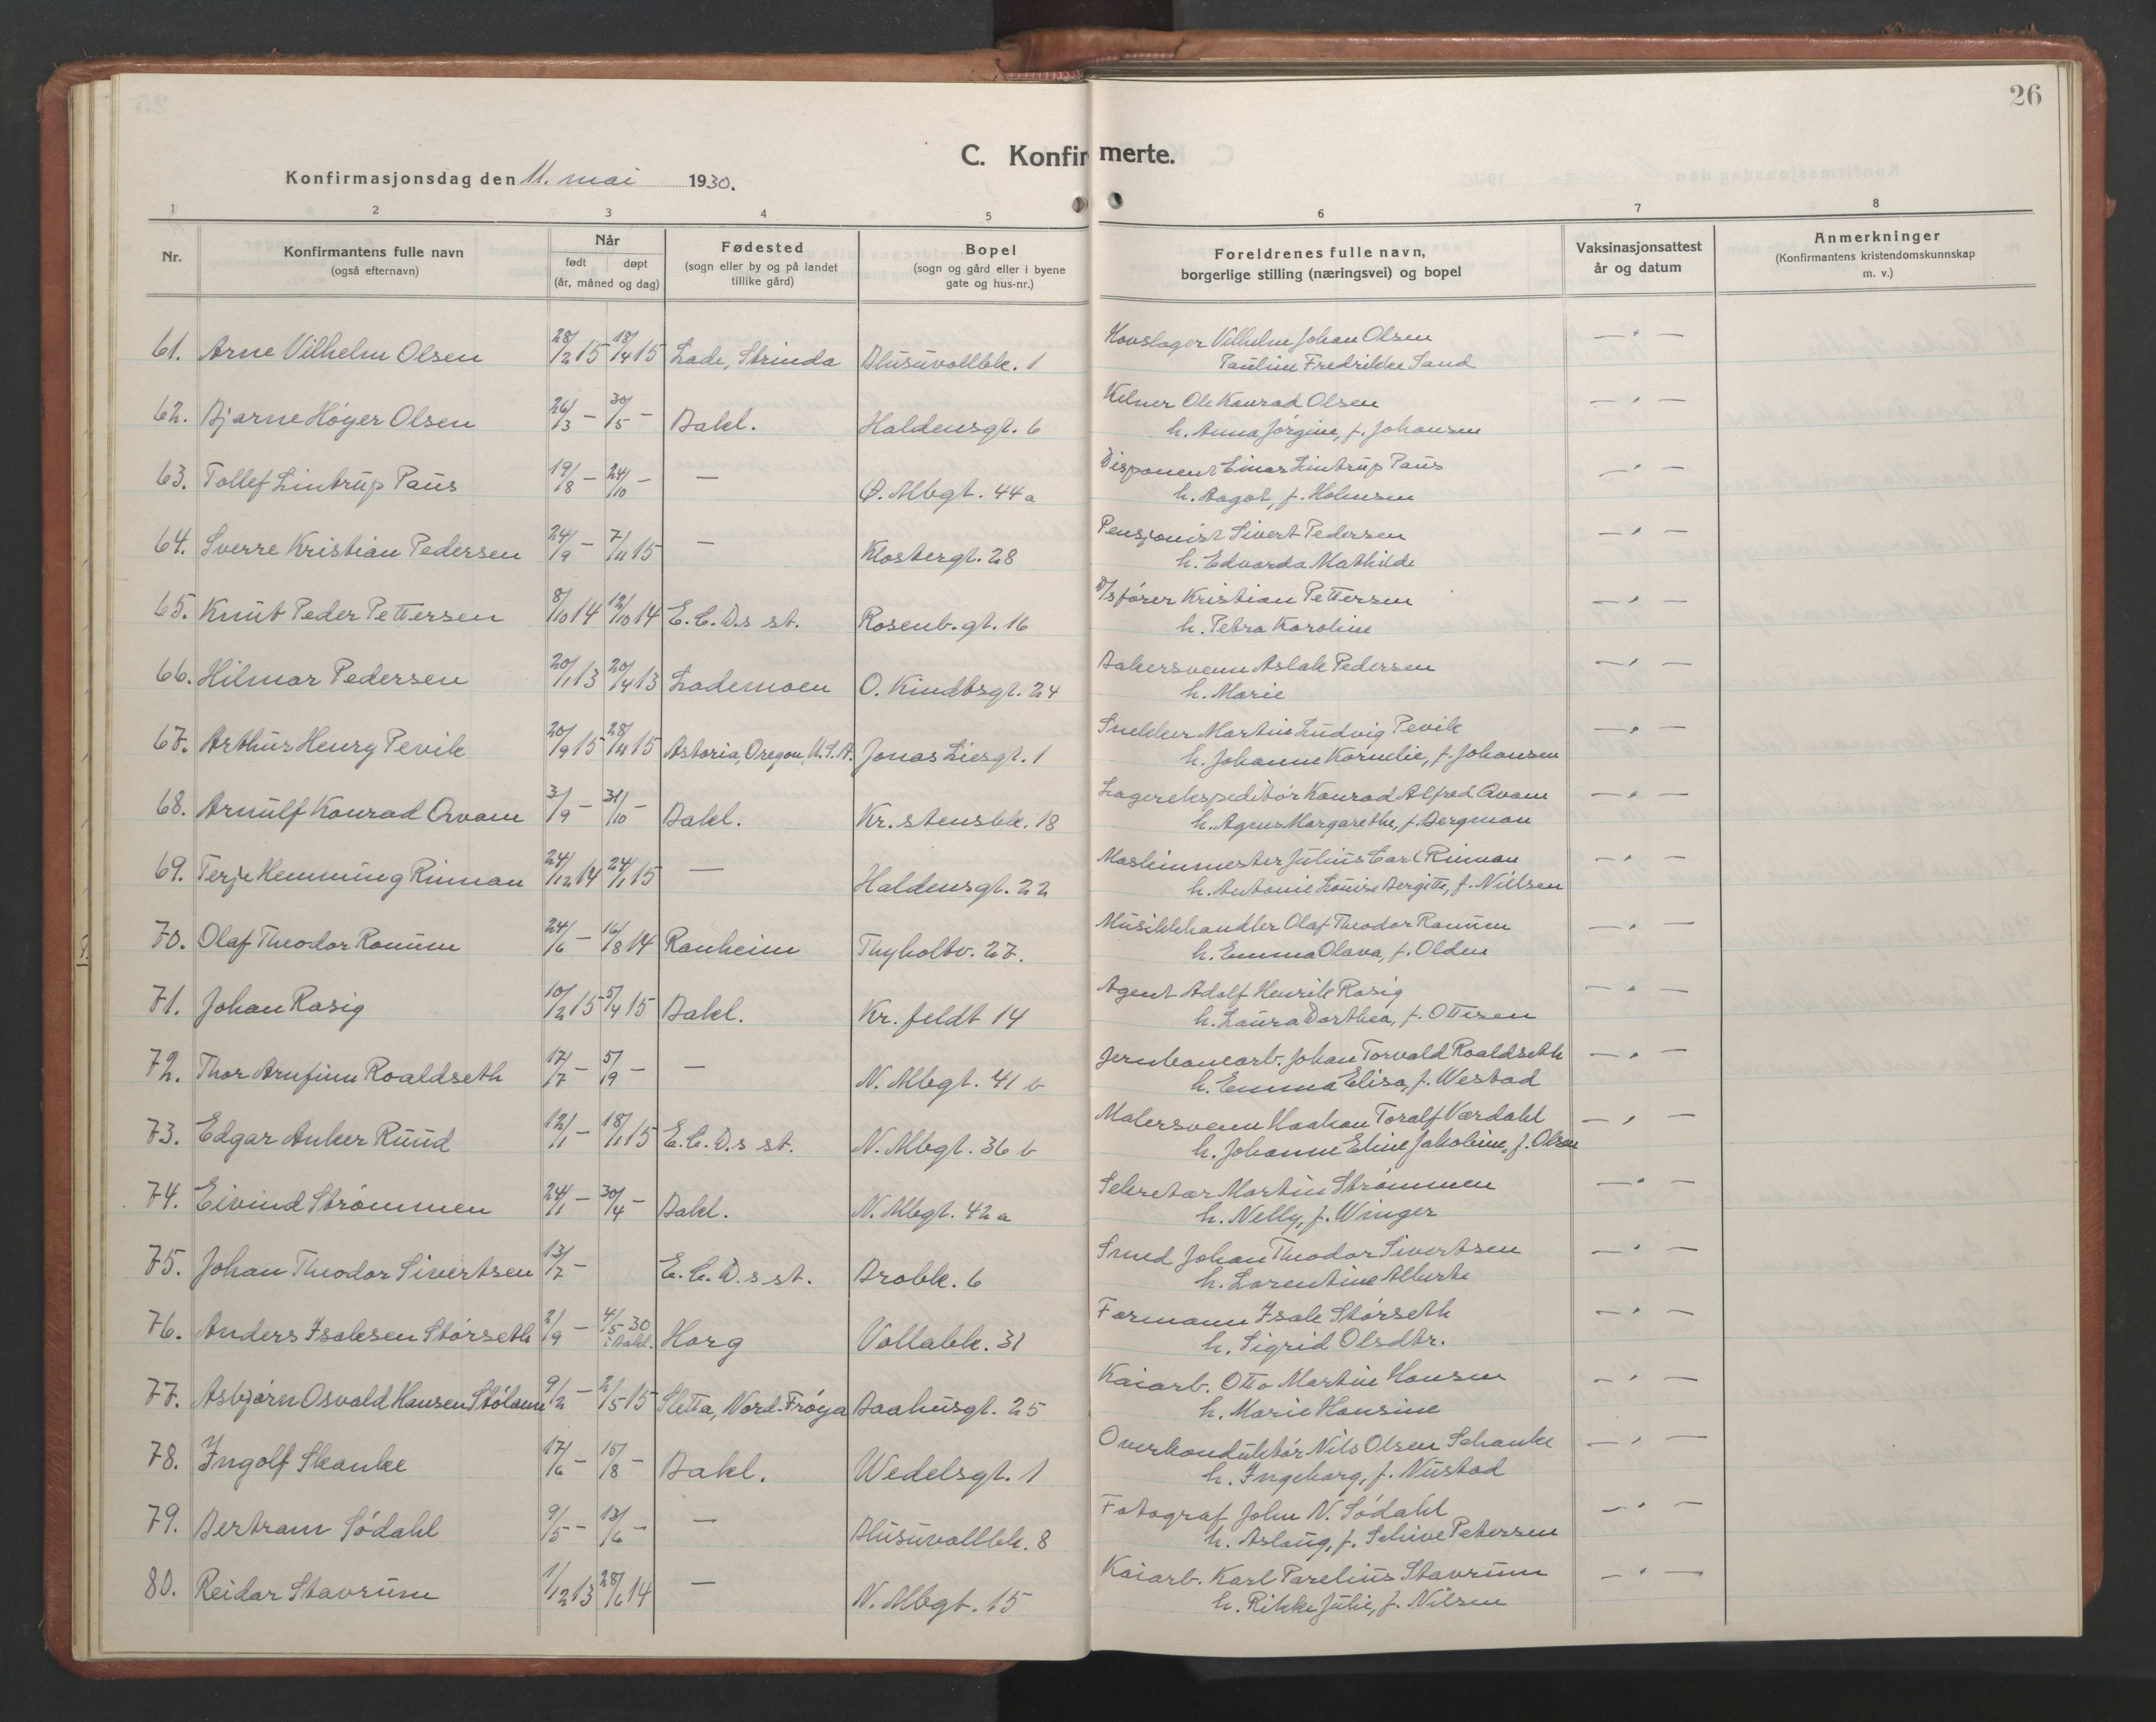 26
C. Konfirmerte.
Konfirmasjonsdag den 11. mai 1930.
1 2 3 4 5 6 7 8
Nr. Konfirmantens fulle navn (også efternavn) Når født døpt (år, måned og dag) Fødested (sogn eller by og på landet tillike gård) Bopel (sogn og gård eller i byene gate og hus-nr.) Foreldrenes fulle navn, borgerlige stilling (næringsvei) og bopel Vaksinasjonsattest år og datum Anmerkninger (Konfirmantens kristendomskunnskap m. v.)
61. Arne Vilhelm Olsen 28/2 15 18/4 15 Lade, Strinda Blusuvollbk. 1 Hovslager Vilhelm Johan Olsen — " —
Pauline Fredrikke Sand
62. Bjarne Høyer Olsen 26/3 – 30/5 – Bakl. Haldensgt. 6 Kelner Ole Konrad Olsen — " —
h. Anna Jørgine, f. Johansen
63. Tollef Lintrup Paus 19/8 – 24/10 – — Ø. Mbgt. 44a Disponent Einar Lintrup Paus — " —
h. Aagot, f. Holmsen
64. Sverre Kristian Pedersen 24/9 – 7/11 15 — Klostergt. 28 Pensjonist Sivert Pedersen — " —
h. Edvarda Mathilde
65. Knut Peder Pettersen 8/10 14 12/10 14 E.C.D.s st. Rosenb.gt. 16 D/sfører Kristian Pettersen — " —
h. Petra Karoline
66. Hilmar Pedersen 20/1 13 20/4 13 Lademoen O. Kindtsgt. 24 Bakersvenn Aslak Pedersen — " —
h. Marie
67. Arthur Henry Pevik 20/9 15 28/11 15 Astoria, Oregon, U.S.A. Jonas Liesgt. 1 Snekker Martin Ludvig Pevik — " —
h. Johanne Kornelie, f. Johansen
68. Arnulf Konrad Qvam 3/9 – 31/10 – Bakl. Kr.stensbk. 18 Lagerekspeditør Konrad Alfred Qvam — " —
h. Agnes Margarethe, f. Bergman
69. Terje Hemming Rinnan 24/12 14 24/1 15 — Haldensgt. 22 Maskinmester Julius Carl Rinnan — " —
h. Antonie Louise Bergitte, f. Nielsen
70. Olaf Theodor Ranum 24/6 – 16/8 14 Ranheim Thyholtv. 27. Musikkhandler Olaf Theodor Ranum — " —
h. Emma Olava, f. Olden
71. Johan Rasig 10/2 15 5/4 15 Bakl. Kr.feldt 14 Agent Adolf Henrik Rasig — " —
h. Laura Dorthea, f. Ottesen
72. Thor Arnfinn Roaldseth 17/7 – 5/9 – — N. Mbgt. 41 b Jernbanearb. Johan Torvald Roaldseth — " —
h. Emma Elisa, f. Westad
73. Edgar Anker Ruud 12/1 – 18/1 15 E.C.D.s st. N. Mbgt. 36 b Malersvenn Haakon Toralf Værdahl — " —
h. Johanne Eline Jakobine, f. Olsen
74. Eivind Strømmen 24/1 – 30/4 – Bakl. N. Mbgt. 42a Sekretær Martin Strømmen — " —
h. Nelly, f. Winger
75. Johan Theodor Sivertsen 13/7 – E.C.D.s st. Brobk. 6 Smed Johan Theodor Sivertsen — " —
h. Lorentine Alberte
76. Anders Isaksen Størseth 2/9 – 4/5 30 i Bakl. Horg Vollabk. 31 Formann Isak Størseth — " —
h. Sigrid Olsdtr.
77. Asbjørn Osvald Hansen Stølann 9/2 – 2/5 15 Sletta, Nord-Frøya Baahusgt. 25 Kaiarb. Otto Martin Hansen — " —
h. Marie Hansine
78. Ingolf Skanke 17/6 – 15/8 – Bakl. Wedelsgt. 1 Overkonduktør Nils Olsen Schanke — " —
h. Ingeborg, f. Nustad
79. Bertram Sødahl 9/5 – 13/6 – — Blusuvollbk. 8 Fotograf John N. Sødahl — " —
h. Aslaug, f. Schive Petersen
80. Reidar Stavrum 1/12 13 28/6 14 — N. Mbgt. 15 Kaiarb. Karl Parelius Stavrum — " —
h. Rikke Julie, f. Nilsen